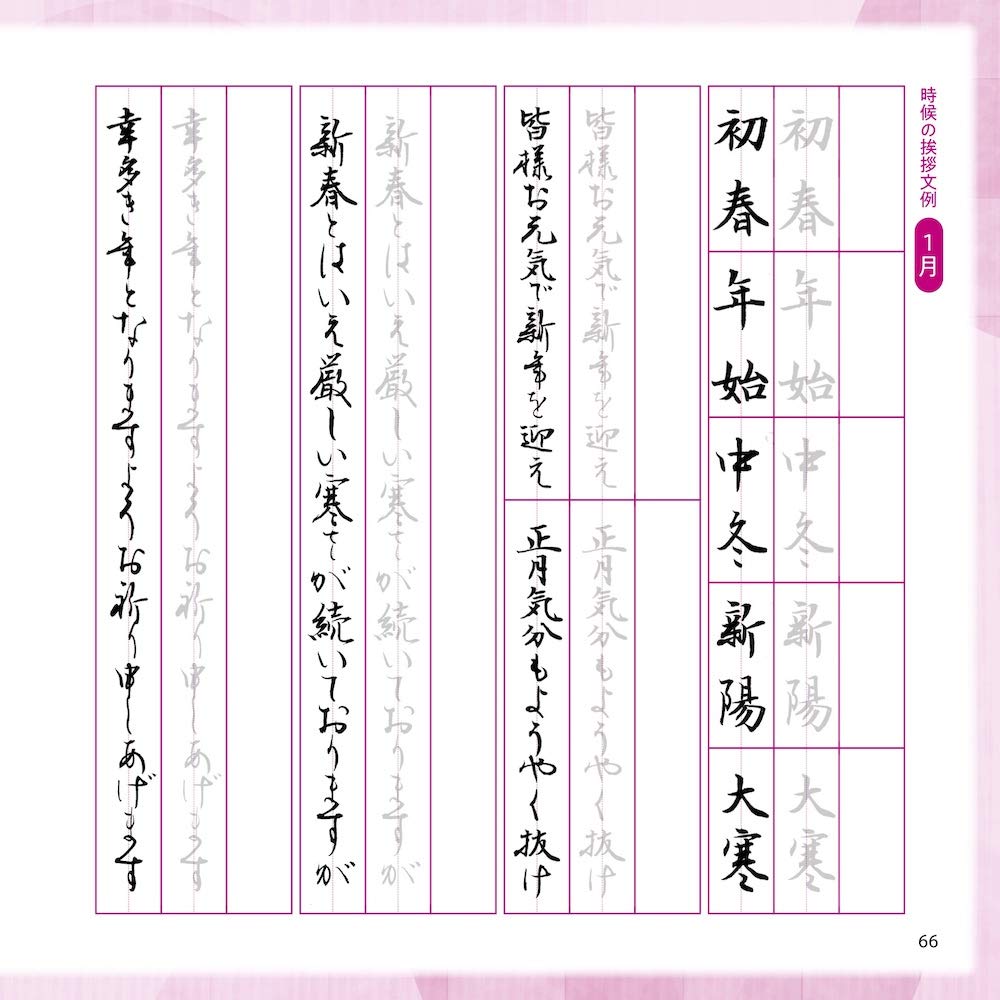 時候の挨拶文例 1月
初春
初春
年始
年始
中冬
中冬
新陽
新陽
大寒
大寒
皆様お元気で新年を迎え
皆様お元気で新年を迎え
正月気分もようやく抜け
正月気分もようやく抜け
新春とはいえ厳しい寒さが続いておりますが
新春とはいえ厳しい寒さが続いておりますが
幸多き年となりますようお祈り申しあげます
幸多き年となりますようお祈り申しあげます
66